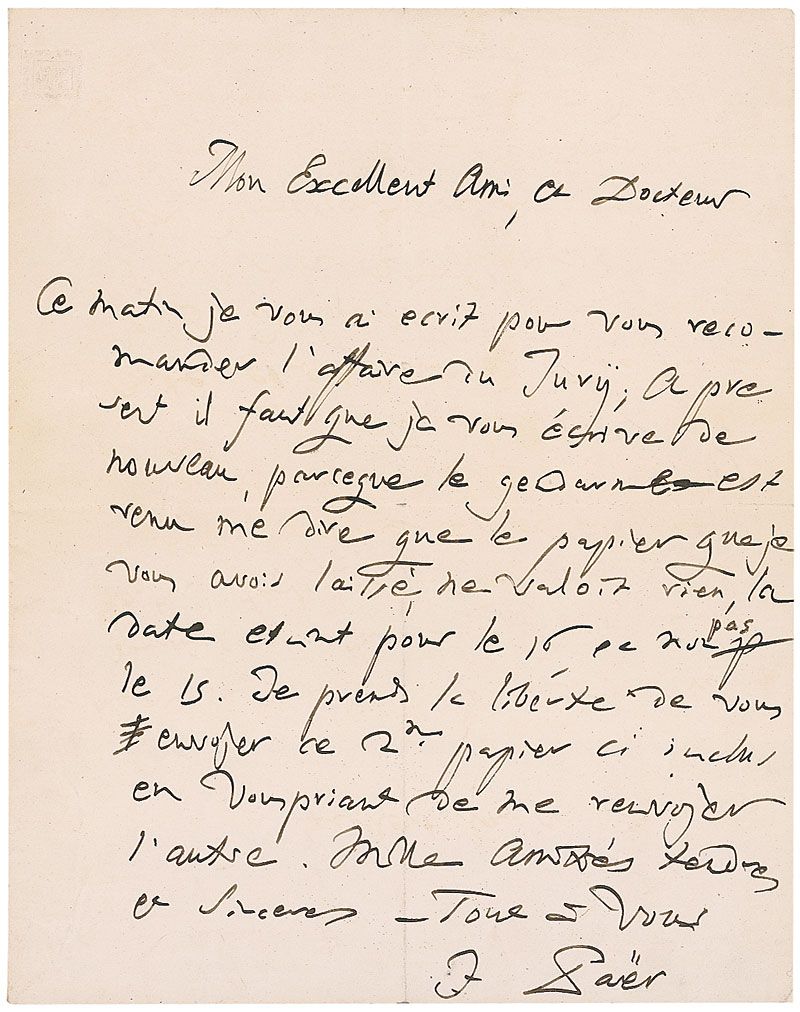 Mon Excellent Ami, et Docteur
Ce matin je vous ai ecrit pour vous reco-
mander l'affaire du Jurÿ; A pre
sent il faut que je vous écrive de
nouveau, parceque le gendarme est
venu me dire que le papier que je
vous avois laissé, ne valoit rien, la
date etant pour le 16 et non pas
le 15. Je prends la libérte de vous
envojer ce 2me papier ci inclus
en Vous priant de me renvojer
l'autre. Mille Amitiés tendres
et Sinceres – Tout à Vous
F Paër